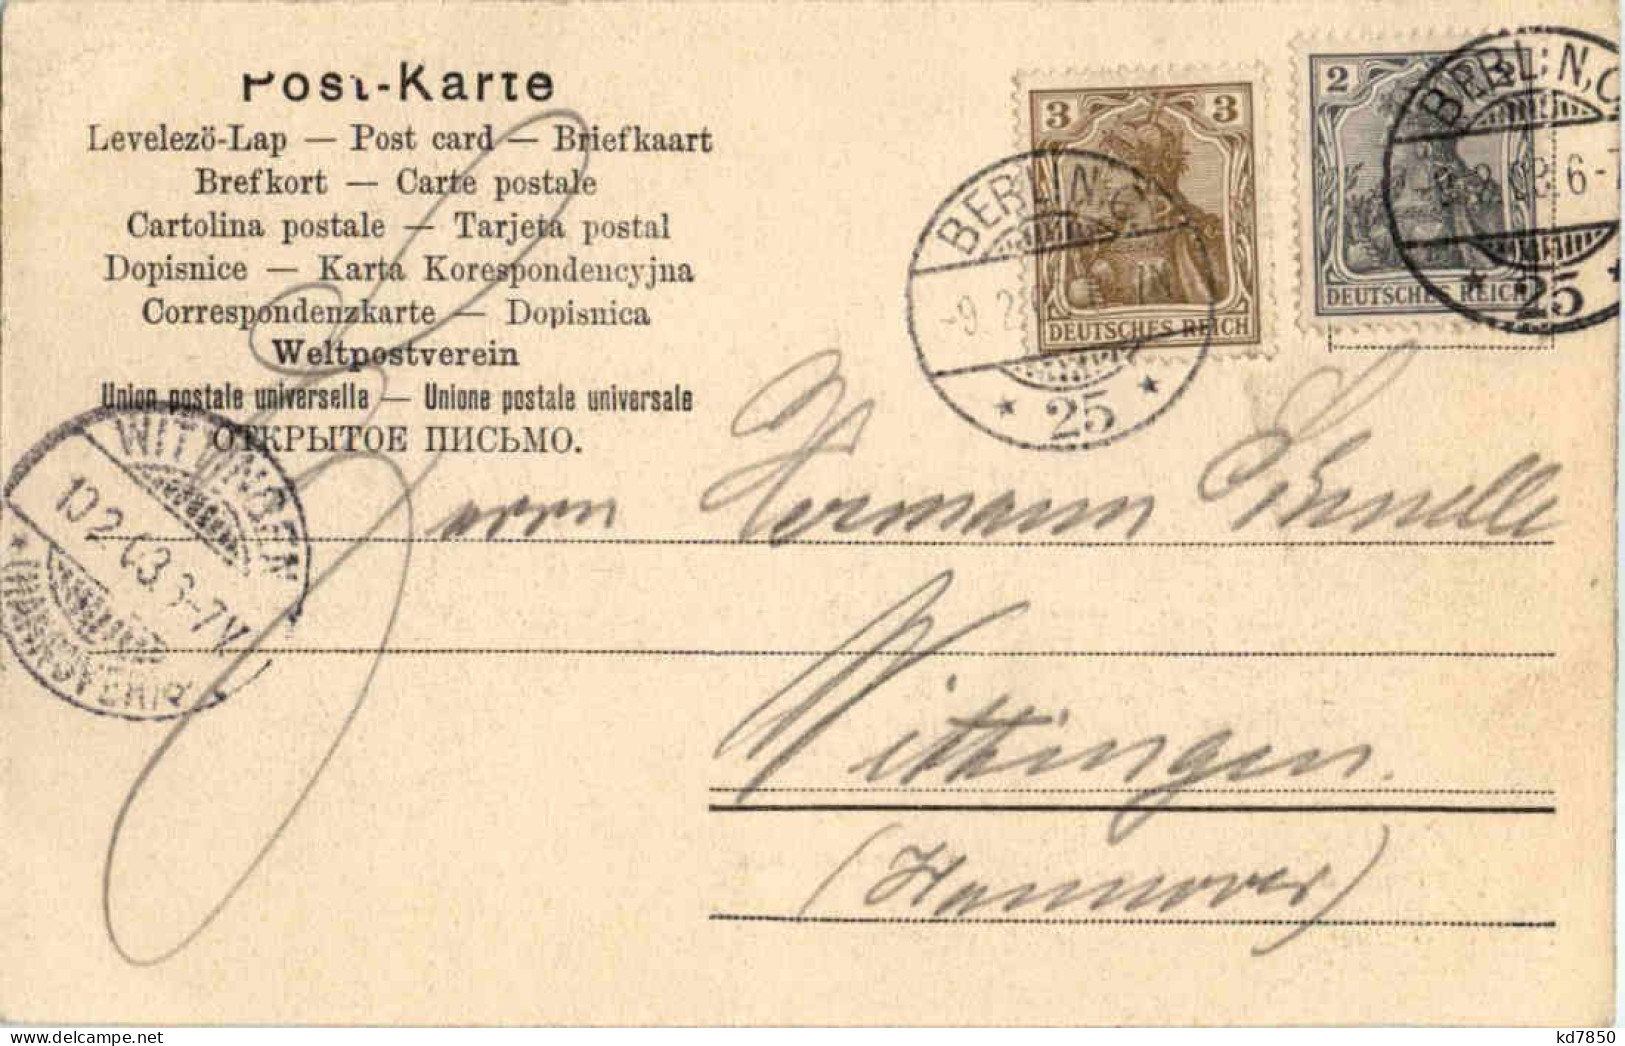 Post-Karte
Levelezö-Lap — Post card — Briefkaart
Brefkort — Carte postale
Cartolina postale — Tarjeta postal
Dopisnice — Karta Korespondencyjna
Correspondenzkarte — Dopisnica
Weltpostverein
Union postale universelle — Unione postale universale
ОТКРЫТОЕ ПИСЬМО.
3 3
DEUTSCHES REICH
2
DEUTSCHES REICH
BERLIN, C.
-9. 2.
* 25 *
BERLIN, C.
6-7
* 25 *
WITTINGEN
10 2 03 6-7V
* (HANNOVER)
Herrn Hermann Schnelle
Wittingen.
(Hannover)
kd7850